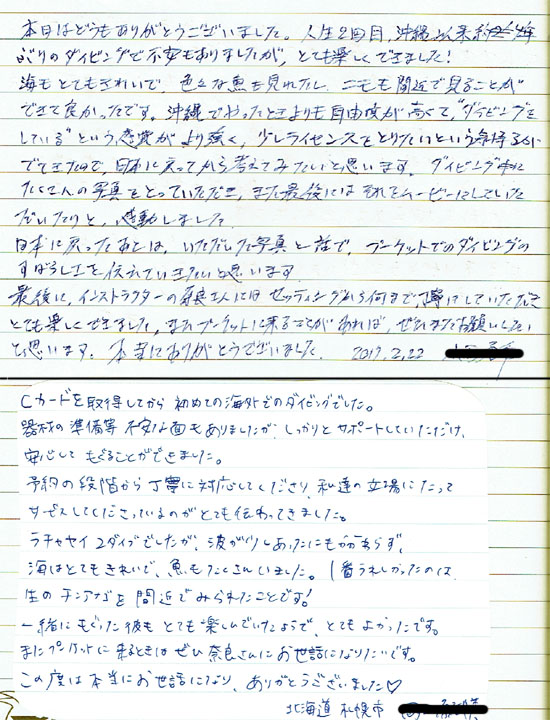 本日はどうもありがとうございました。人生2回目、沖縄以来約
ぶりのダイビングで不安もありましたが、とても楽しくできました！
海もとてもきれいで、色々な魚も見れたし、ニモも間近で見ることが
できて良かったです。沖縄でやったときよりも自由度が高くて、"ダイビングを
している"という感覚がより強く、少しライセンスをとりたいという気持ちが
でてきたので、日本に戻ってから考えてみたいと思います。ダイビング中に
たくさんの写真をとっていただき、また最後にはそれをムービーにしていた
だいたりと、感動しました。
日本に戻ったあとは、いただいた写真と話で、プーケットでのダイビングの
すばらしさを伝えていきたいと思います
最後に、インストラクターの奈良さんにはセッティングから何まで丁寧にしていただき
とても楽しくできました。またプーケットに来ることがあれば、ぜひまたお願いしたい
と思います。本当にありがとうございました。 2017.2.22
Cカードを取得してから初めての海外でのダイビングでした。
器材の準備等不安な面もありましたが、しっかりとサポートしていただけ、
安心してもぐることができました。
予約の段階から丁寧に対応してくださり、私達の立場にたって
サービスしてくださっているのがとても伝わってきました。
ラチャヤイ2ダイブでしたが、波が少しあったにもかかわらず、
海はとてもきれいで、魚もたくさんいました。1番うれしかったのは、
生のチンアナゴを間近でみられたことです！
一緒にもぐった彼もとても楽しんでいたようで、とてもよかったです。
またプーケットに来るときはぜひ奈良さんにお世話になりたいです。
この度は本当にお世話になり、ありがとうございました♡
北海道 札幌市